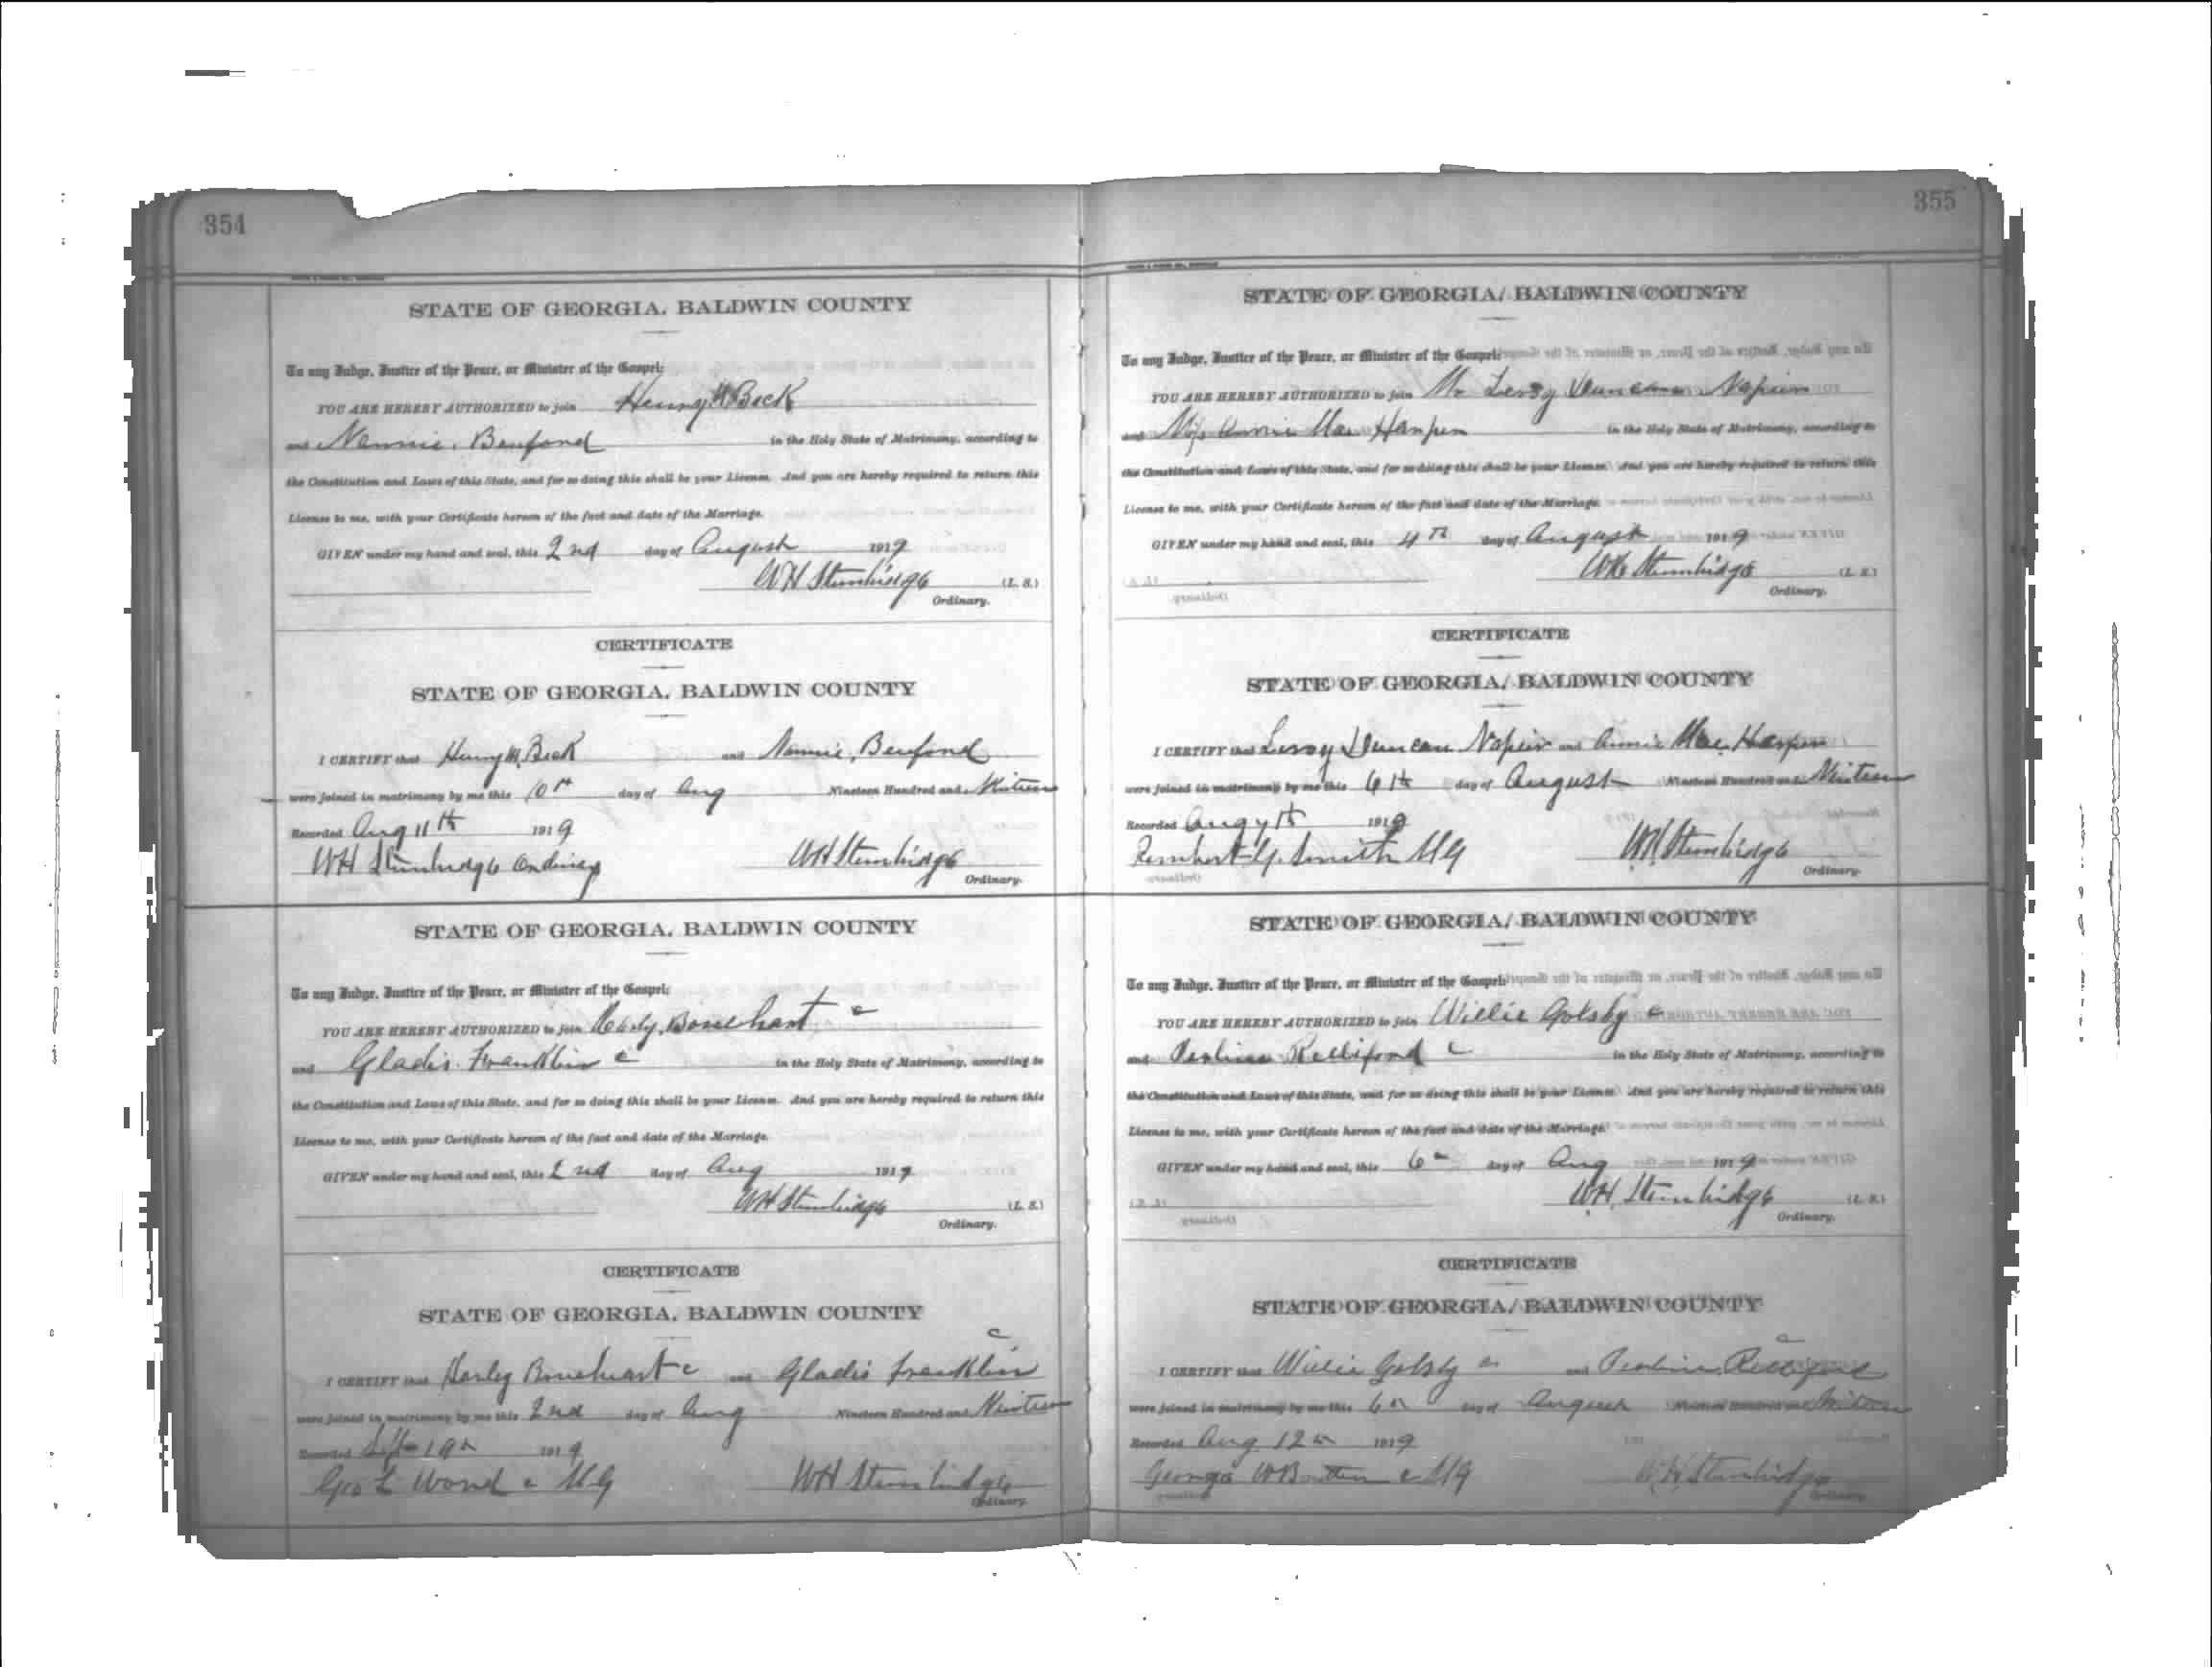 354
STATE OF GEORGIA, BALDWIN COUNTY
To any Judge, Justice of the Peace, or Minister of the Gospel:
YOU ARE HEREBY AUTHORIZED to join Henry M Beck
and Nannie Benford in the Holy State of Matrimony, according to
the Constitution and Laws of this State, and for so doing this shall be your License. And you are hereby required to return this
License to me, with your Certificate hereon of the fact and date of the Marriage.
GIVEN under my hand and seal, this 2nd day of August 1919
WH Stembridge (L. S.)
Ordinary.
CERTIFICATE
STATE OF GEORGIA, BALDWIN COUNTY
I CERTIFY that Henry M Beck and Nannie Benford
were joined in matrimony by me this 10th day of Aug Nineteen Hundred and
Recorded Aug 11th 1919
WH Stembridge Ordinary WH Stembridge
Ordinary.
STATE OF GEORGIA, BALDWIN COUNTY
To any Judge, Justice of the Peace, or Minister of the Gospel:
YOU ARE HEREBY AUTHORIZED to join c
and Gladis Franklin c in the Holy State of Matrimony, according to
the Constitution and Laws of this State, and for so doing this shall be your License. And you are hereby required to return this
License to me, with your Certificate hereon of the fact and date of the Marriage.
GIVEN under my hand and seal, this 2nd day of Aug 1919
WH Stembridge (L. S.)
Ordinary.
CERTIFICATE
STATE OF GEORGIA, BALDWIN COUNTY
c
I CERTIFY that Harley c and Gladis Franklin
were joined in matrimony by me this 2nd day of Aug Nineteen Hundred and
Recorded 1919
Geo L c MG WH Stembridge
Ordinary.
355
STATE OF GEORGIA, BALDWIN COUNTY
To any Judge, Justice of the Peace, or Minister of the Gospel:
YOU ARE HEREBY AUTHORIZED to join Mr Leroy Duncan Napier
and Miss Annie Mae Harper in the Holy State of Matrimony, according to
the Constitution and Laws of this State, and for so doing this shall be your License. And you are hereby required to return this
License to me, with your Certificate hereon of the fact and date of the Marriage.
GIVEN under my hand and seal, this 4th day of August 1919
WH Stembridge (L. S.)
Ordinary.
CERTIFICATE
STATE OF GEORGIA, BALDWIN COUNTY
I CERTIFY that Leroy Duncan Napier and Annie Mae Harper
were joined in matrimony by me this 6th day of August Nineteen Hundred and
Recorded Aug 7th 1919
Rembert G. Smith MG WH Stembridge
Ordinary.
STATE OF GEORGIA, BALDWIN COUNTY
To any Judge, Justice of the Peace, or Minister of the Gospel:
YOU ARE HEREBY AUTHORIZED to join Willie Golsby c
and c in the Holy State of Matrimony, according to
the Constitution and Laws of this State, and for so doing this shall be your License. And you are hereby required to return this
License to me, with your Certificate hereon of the fact and date of the Marriage.
GIVEN under my hand and seal, this 6th day of Aug 1919
WH Stembridge (L. S.)
Ordinary.
CERTIFICATE
STATE OF GEORGIA, BALDWIN COUNTY
c
I CERTIFY that Willie Golsby c and
were joined in matrimony by me this 6th day of August Nineteen Hundred and
Recorded Aug 12th 1919
George W c MG WH Stembridge
Ordinary.